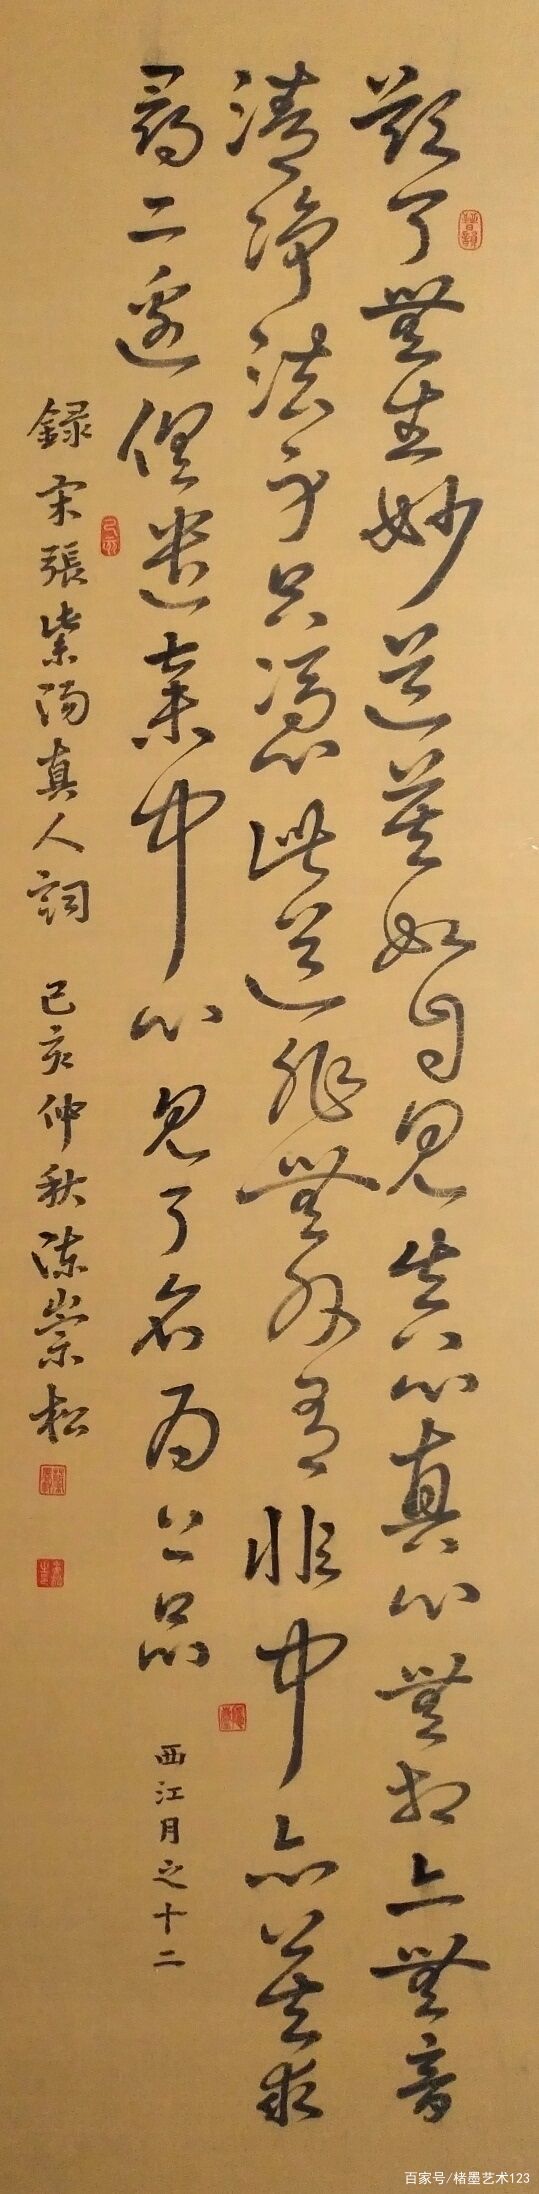 欲了無生妙道莫如自見真心真心無相亦無音
清淨法身只恁此道非無非有非中亦莫求
尋二邊俱遣棄中心見了名為上品
西江月之十二
錄宋張紫陽真人詞 己亥仲秋陳崇松
百家号/楮墨艺术123